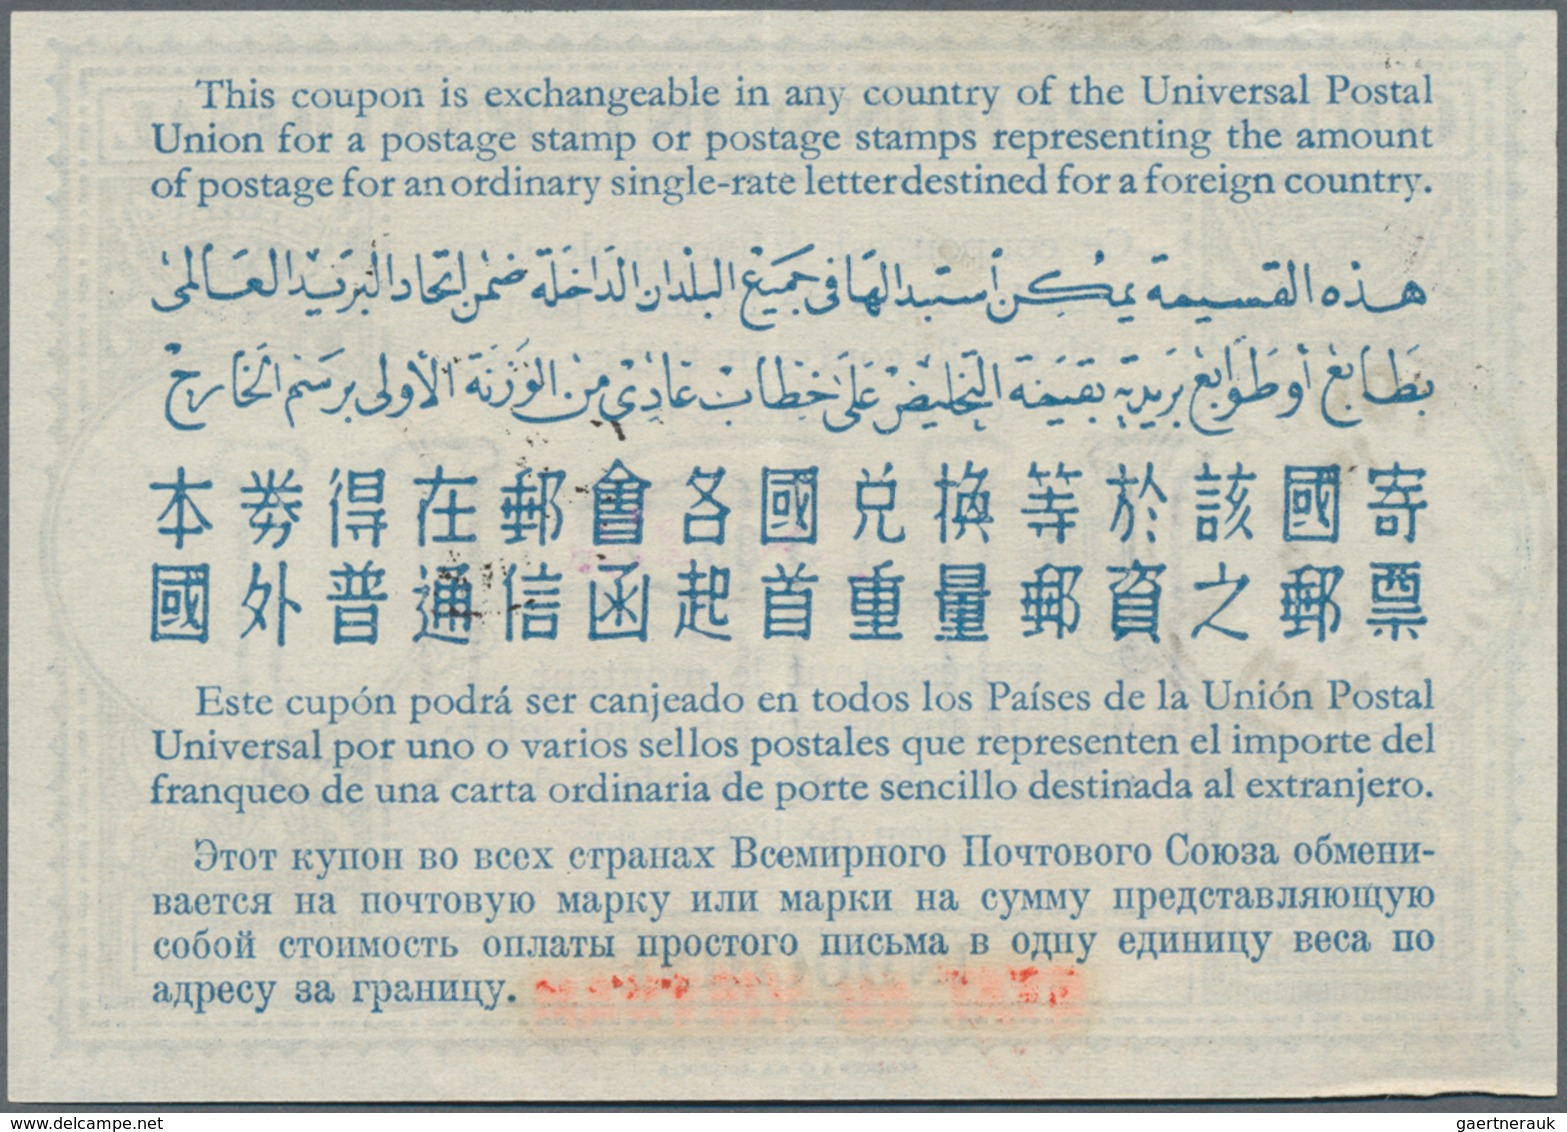 This coupon is exchangeable in any country of the Universal Postal
Union for a postage stamp or postage stamps representing the amount
of postage for an ordinary single-rate letter destined for a foreign country.
هذه القسيمة يمكن استبدالها في جميع البلدان الداخلة ضمن اتحاد البريد العالمى
بطابع أو طوابع بريدية بقيمة التخليص على خطاب عادى من الوزنة الأولى برسم الخارج
本券得在郵會各國兌換等於該國寄
國外普通信函起首重量郵資之郵票
Este cupón podrá ser canjeado en todos los Países de la Unión Postal
Universal por uno o varios sellos postales que representen el importe del
franqueo de una carta ordinaria de porte sencillo destinada al extranjero.
Этот купон во всех странах Всемирного Почтового Союза обмени-
вается на почтовую марку или марки на сумму представляющую
собой стоимость оплаты простого письма в одну единицу веса по
адресу за границу.
delcampe.net
gaertnerauk